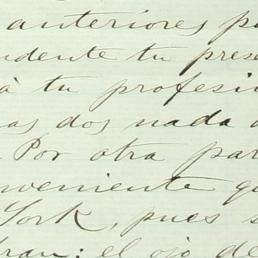 anteriores p
ndente tu pres
à tu profesi
as dos nada
Por otra par
veniente q
York, pues s
fran; el ojo de